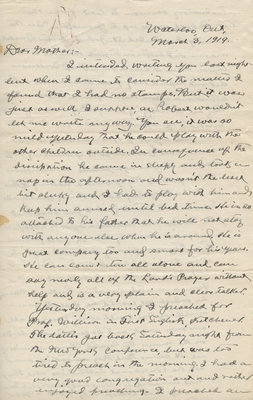 Waterloo, Ont,
March 3, 1919.
Dear Mother:-
I intended writing you last night
but when I came to consider the matter I
found that I had no stamps, But it was
just as well I suppose, as Robert wouldn't
let me write anyway. You see, it was so
mild yesterday that he could play with the
other children outside. In consequence of the
dissipation he came in sleepy and took a
nap in the afternoon and wasn't the least
bit sleepy and I had to play with him and
keep him amused until bed time. He is so
attached to his father that he will not stay
with anyone else when he is around. He is
great company too and smart for his years.
He can count ten all alone and can
say nearly all of the Lord's Prayer without
help and is a very plain and clear talker.
Yesterday morning I preached for
Prof. Willison in First English, Kitchener.
The latter got back Saturday night from
the New York conference, but was too
tired to preach in the morning. I had a
very good congregation out and rather
enjoyed preaching. I preached an